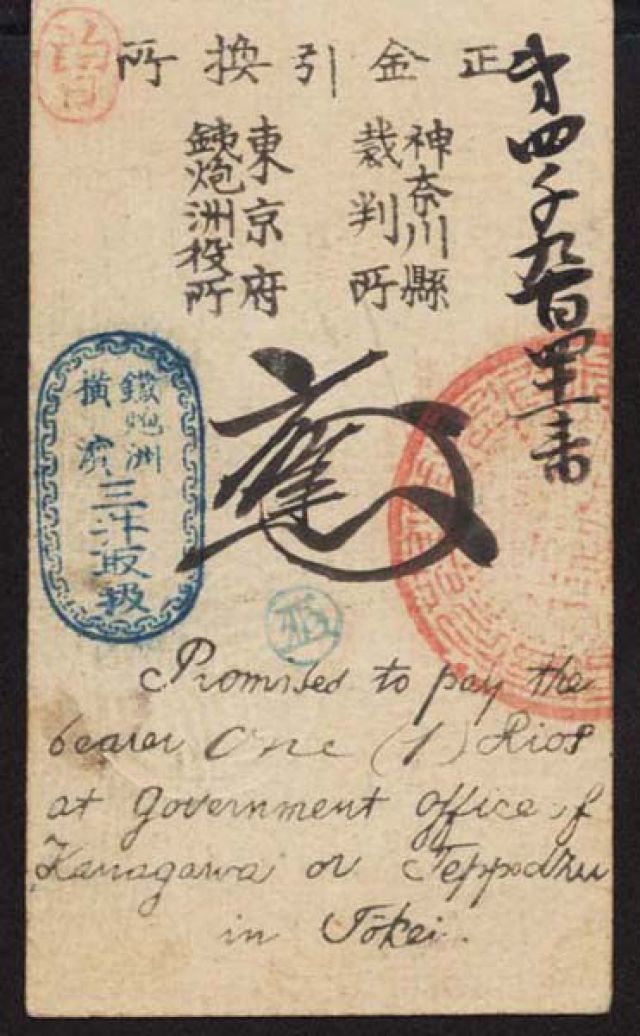 第四千九百四十番
正金引換所
神奈川縣
裁判所
東京府
銕炮洲役所
鐵炮洲
横濱
三井取扱
Promises to pay the
bearer One (1) Rios
at Government office of
Kanagawa or Teppodzu
in Tōkei.